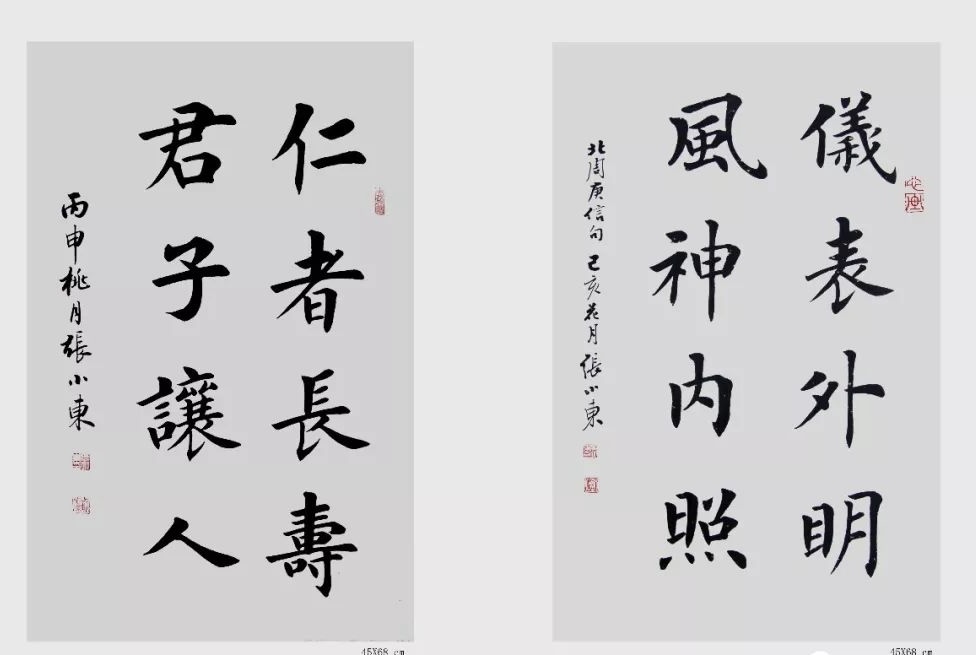 仁者長壽
君子讓人
丙申桃月張小東
45X68 cm
儀表外明
風神内照
北周庾信句 己亥花月 張小東
45X68 cm